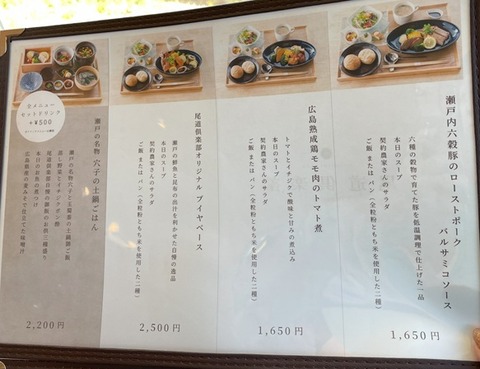 瀬戸内六穀豚のローストポーク
バルサミコソース
六種の穀物で育てた豚を低温調理で仕上げた一品
本日のスープ
契約農家さんのサラダ
ご飯 または パン(全粒粉ともち米を使用した二種)
1,650円
広島熟成鶏モモ肉のトマト煮
トマトとイチジクで酸味と甘みの煮込み
本日のスープ
契約農家さんのサラダ
ご飯 または パン(全粒粉ともち米を使用した二種)
1,650円
尾道倶楽部オリジナル ブイヤベース
瀬戸の鮮魚と昆布の出汁を利かせた自慢の逸品
本日のスープ
契約農家さんのサラダ
ご飯 または パン(全粒粉ともち米を使用した二種)
2,500円
全メニュー
セットドリンク
+¥500
瀬戸の名物 穴子の土鍋ごはん
瀬戸の名物 穴子と
の土鍋ご飯
蒸し野菜とイチジク
尾道倶楽部自慢の
のお供三種盛り
本日のお魚の煮つけ
広島県産の
みそで仕立てた味噌汁
2,200円